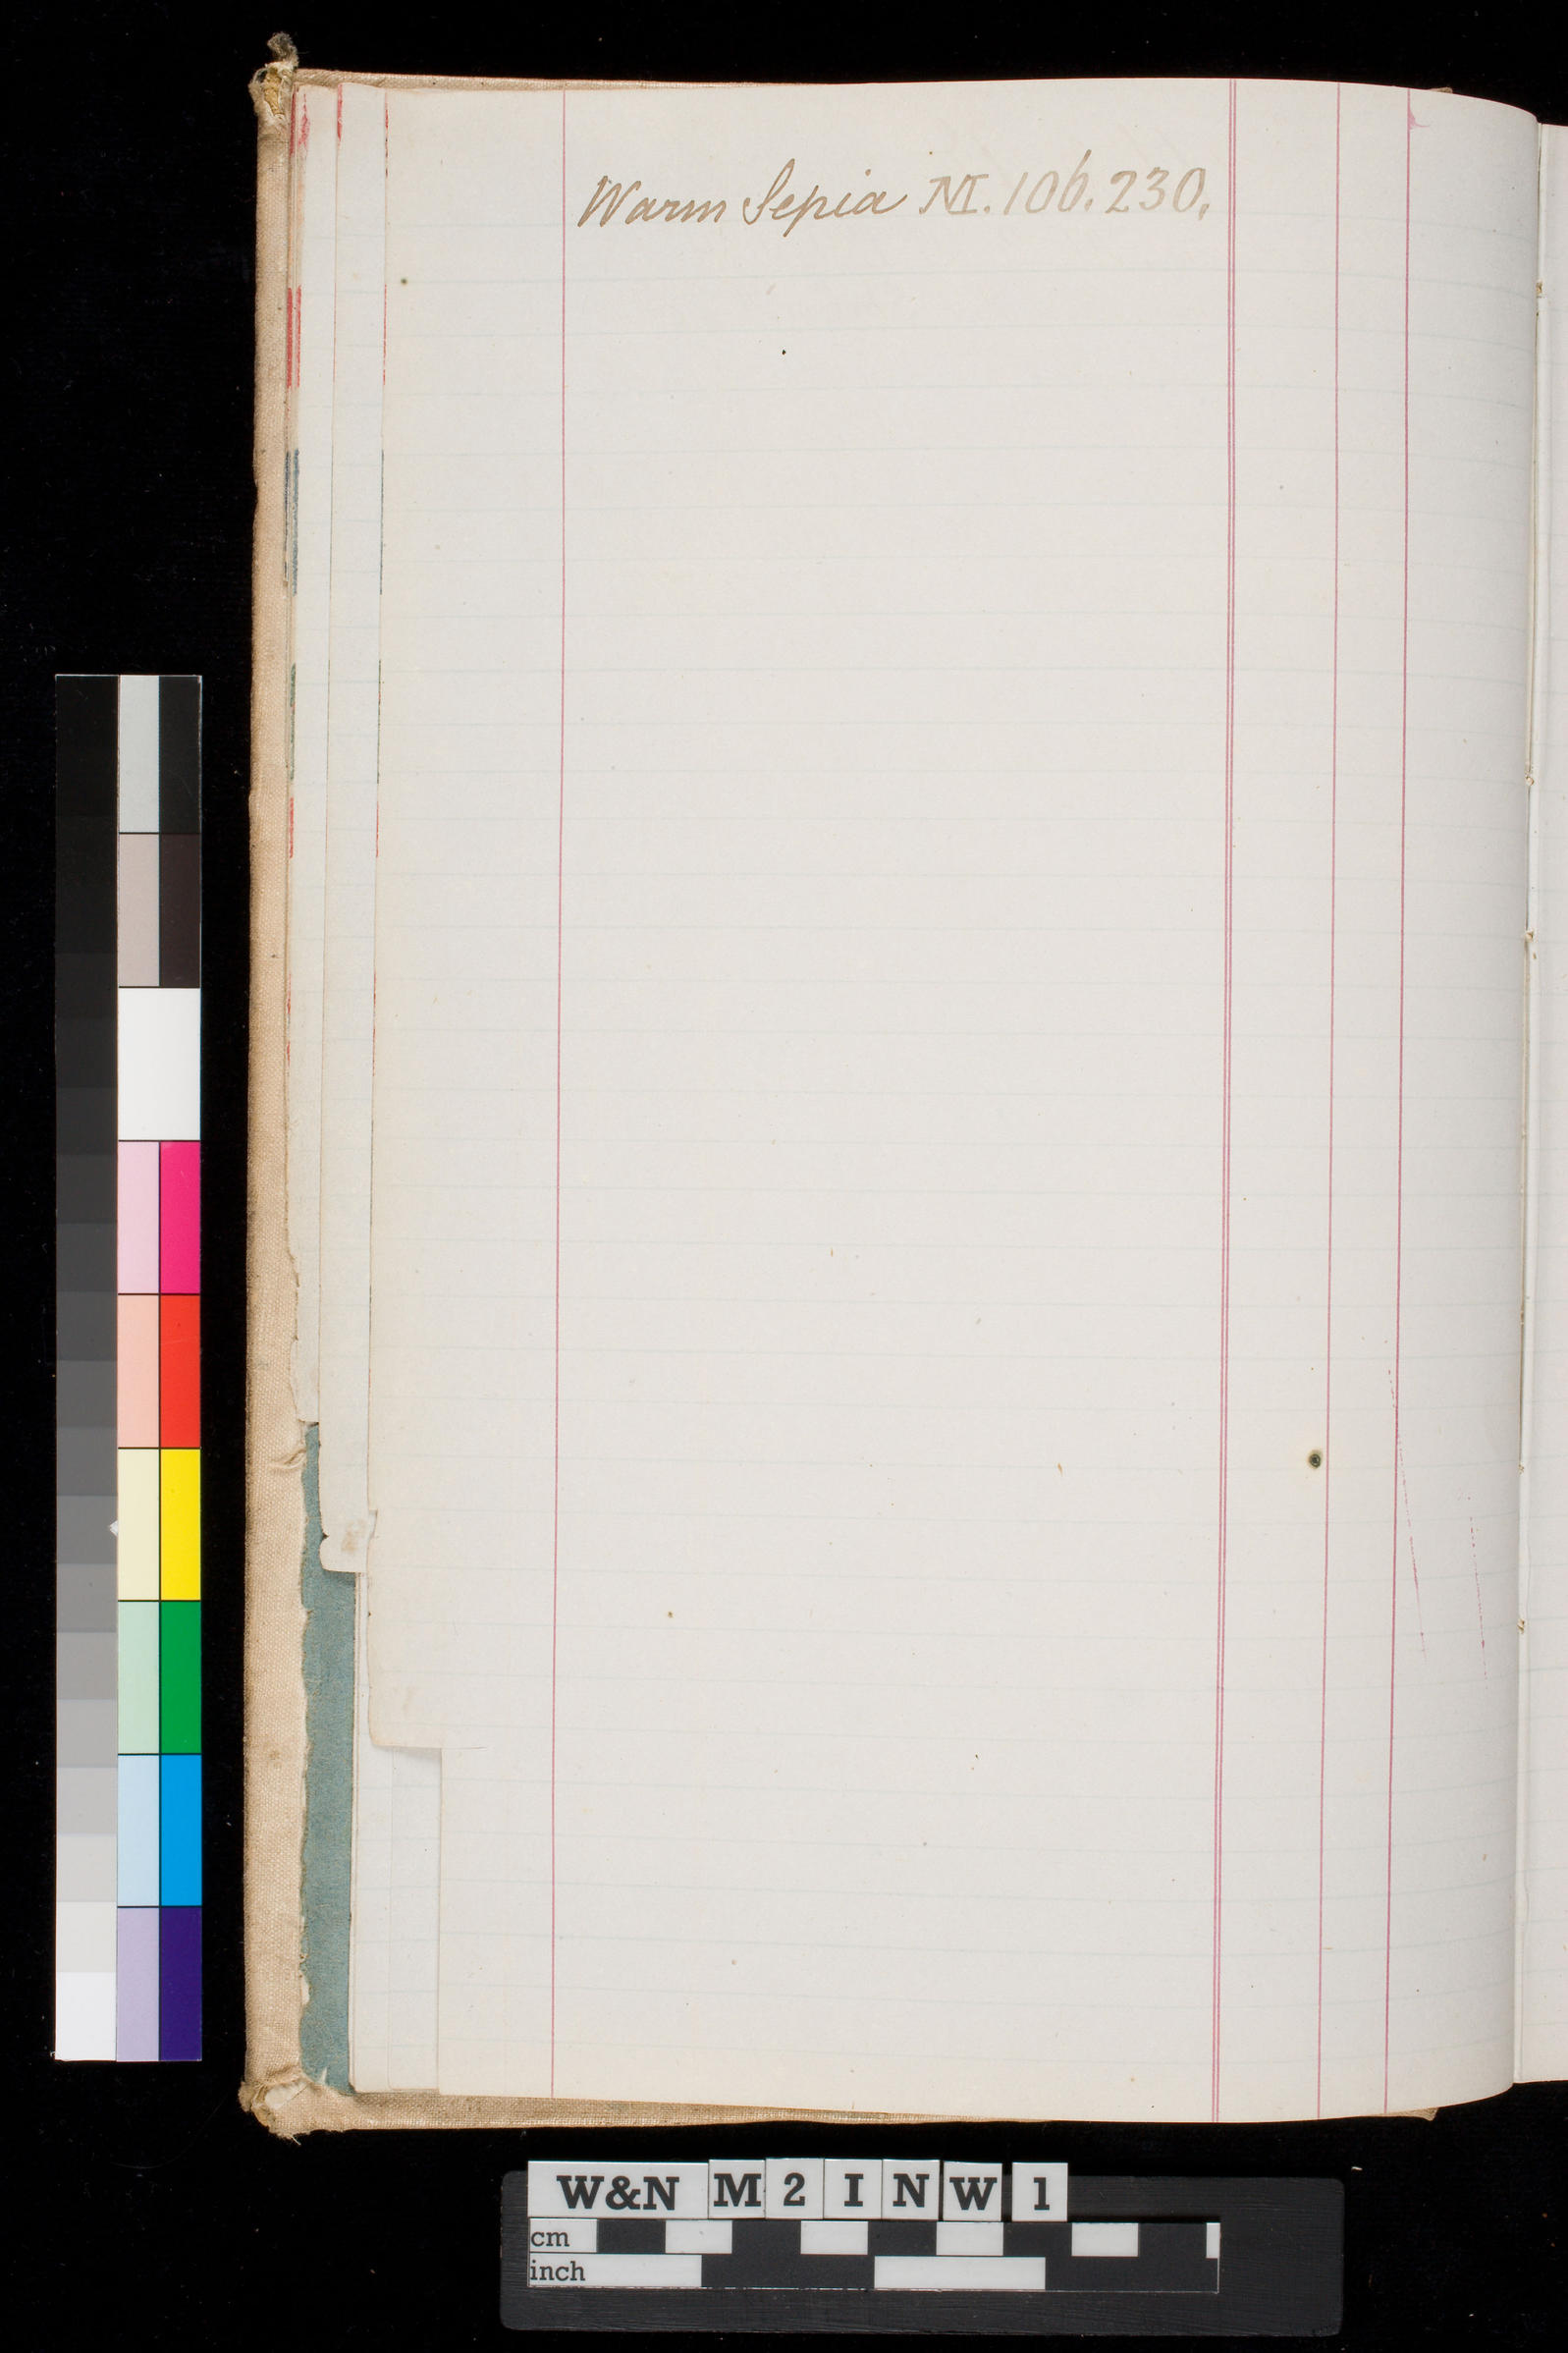 Warm Sepia NI. 106. 230.
W&N M 2 I N W 1
cm
inch